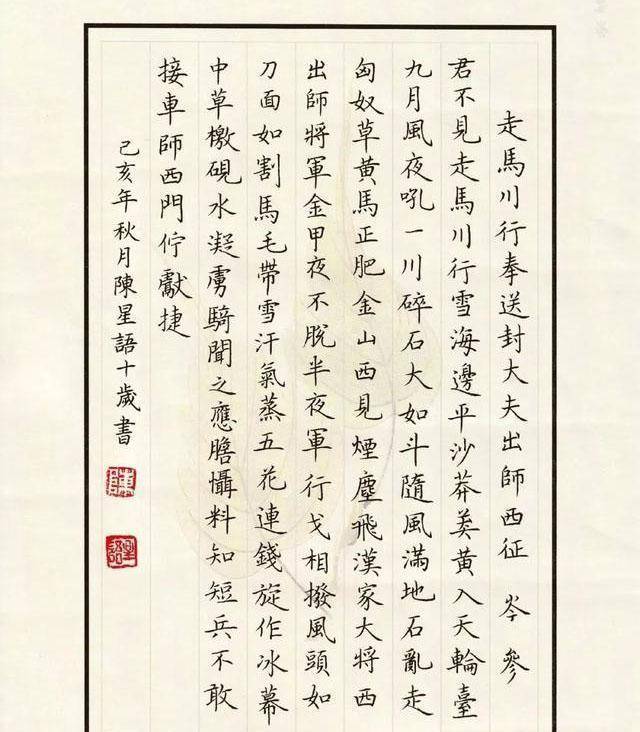 走馬川行奉送封大夫出師西征 岑參
君不見走馬川行雪海邊平沙莽莽黃入天輪臺
九月風夜吼一川碎石大如斗隨風滿地石亂走
匈奴草黃馬正肥金山西見煙塵飛漢家大將西
出師將軍金甲夜不脫半夜軍行戈相撥風頭如
刀面如割馬毛帶雪汗氣蒸五花連錢旋作冰幕
中草檄硯水凝虜騎聞之應膽懾料知短兵不敢
接車師西門佇獻捷
己亥年秋月陳星語十歲書
陳
星語